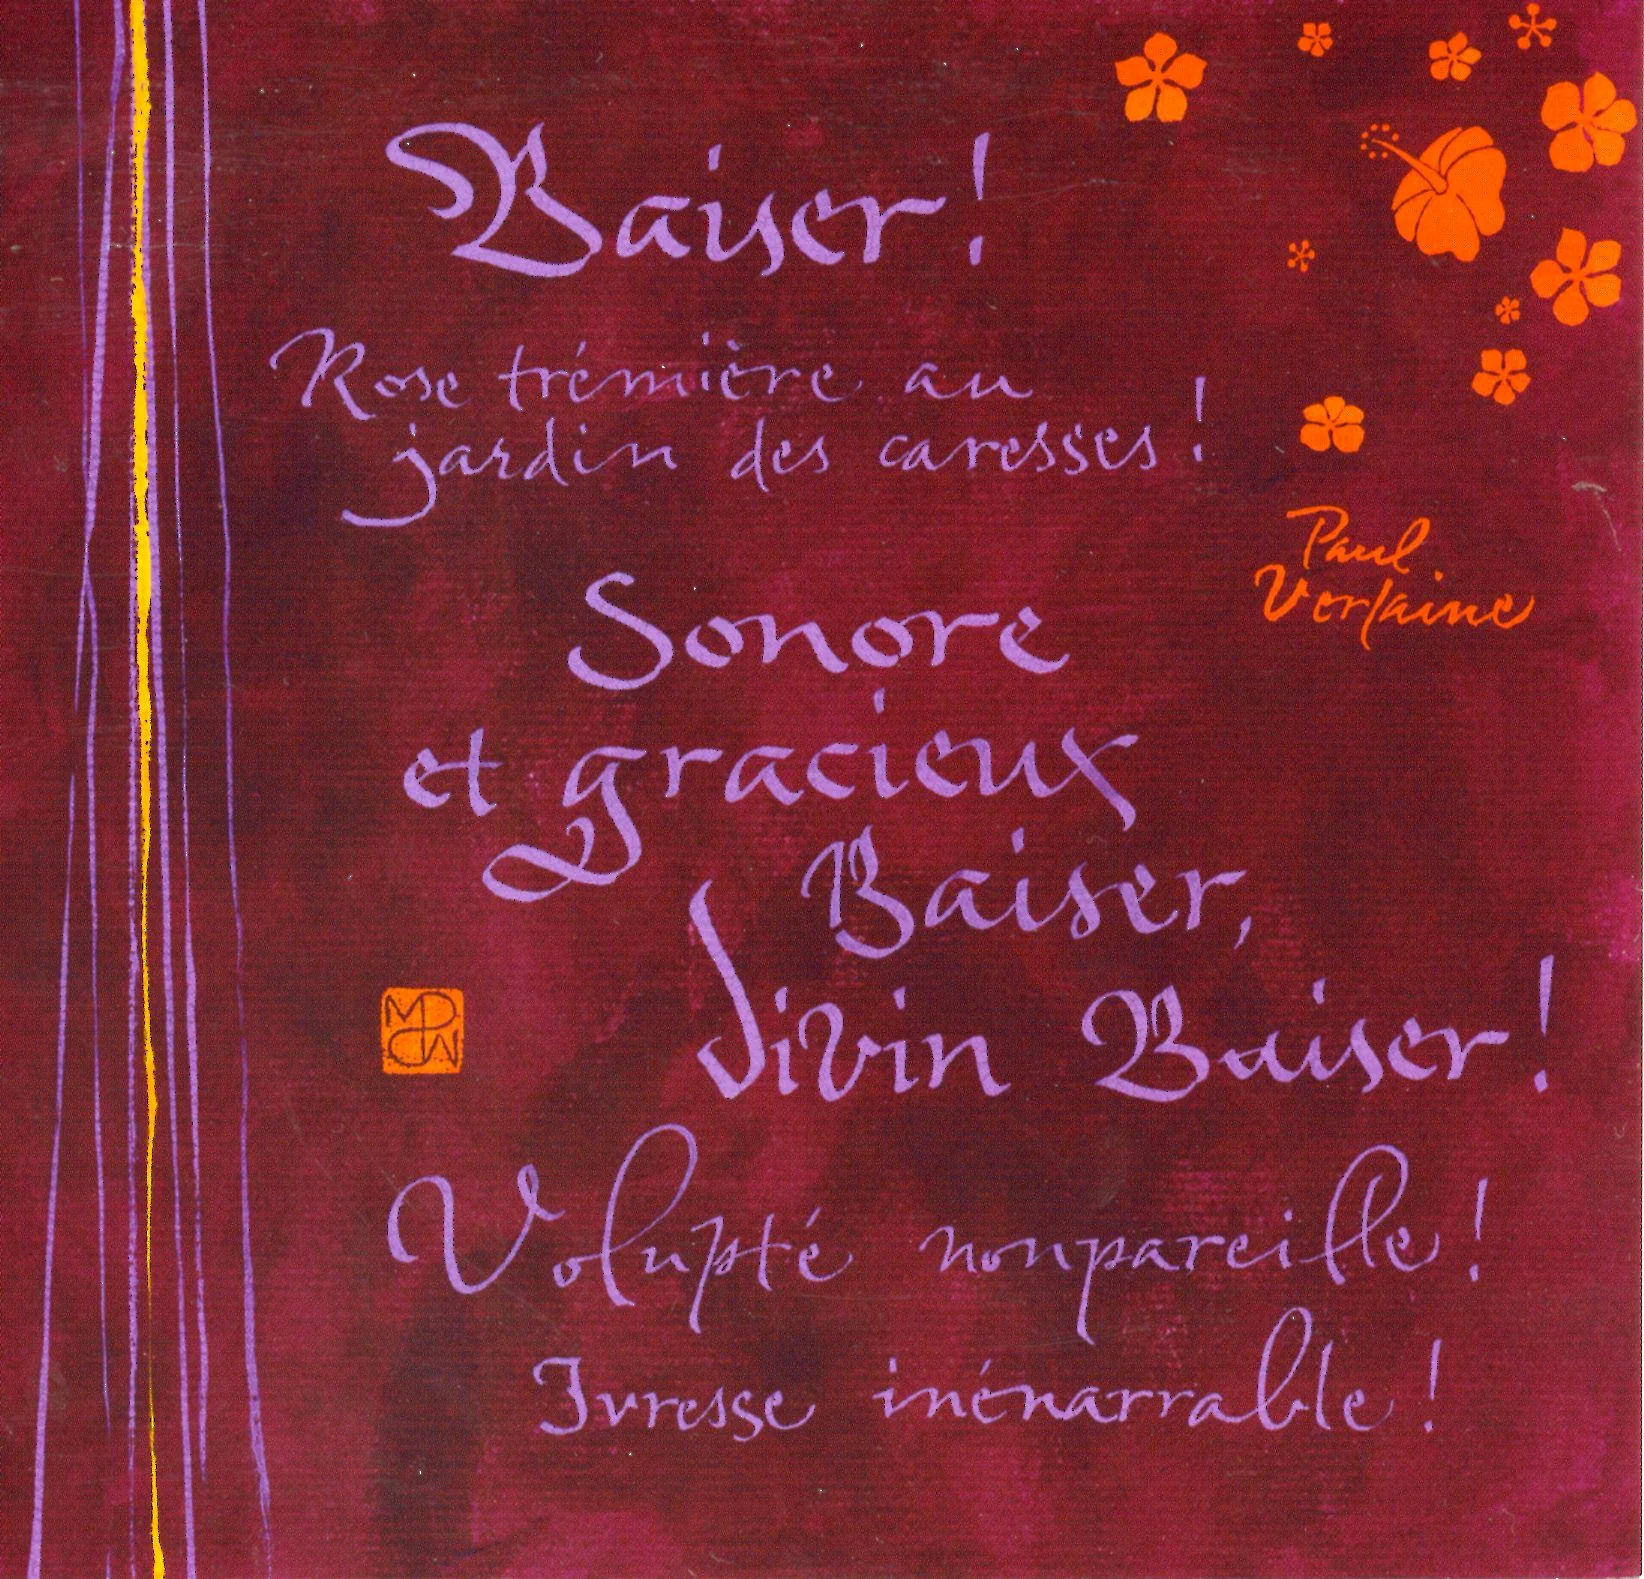 Baiser !
Rose trémière au
jardin des caresses !
Paul
Verlaine
Sonore
et gracieux
Baiser,
divin Baiser !
Volupté nonpareille !
Ivresse inénarrable !